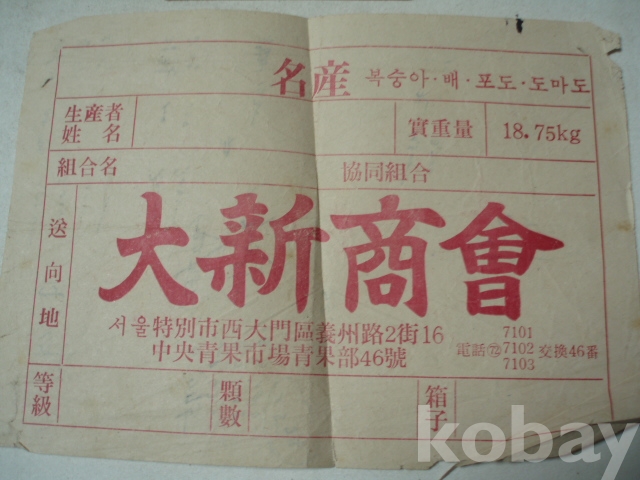 名産 복숭아·배·포도·도마도
生産者
姓名
實重量 18.75kg
組合名 協同組合
送向地
大新商會
서울特別市西大門區義州路2街16
中央青果市場青果部46號
電話㉒7101 7102 7103 交換46番
等級 顆數 箱子
kobay